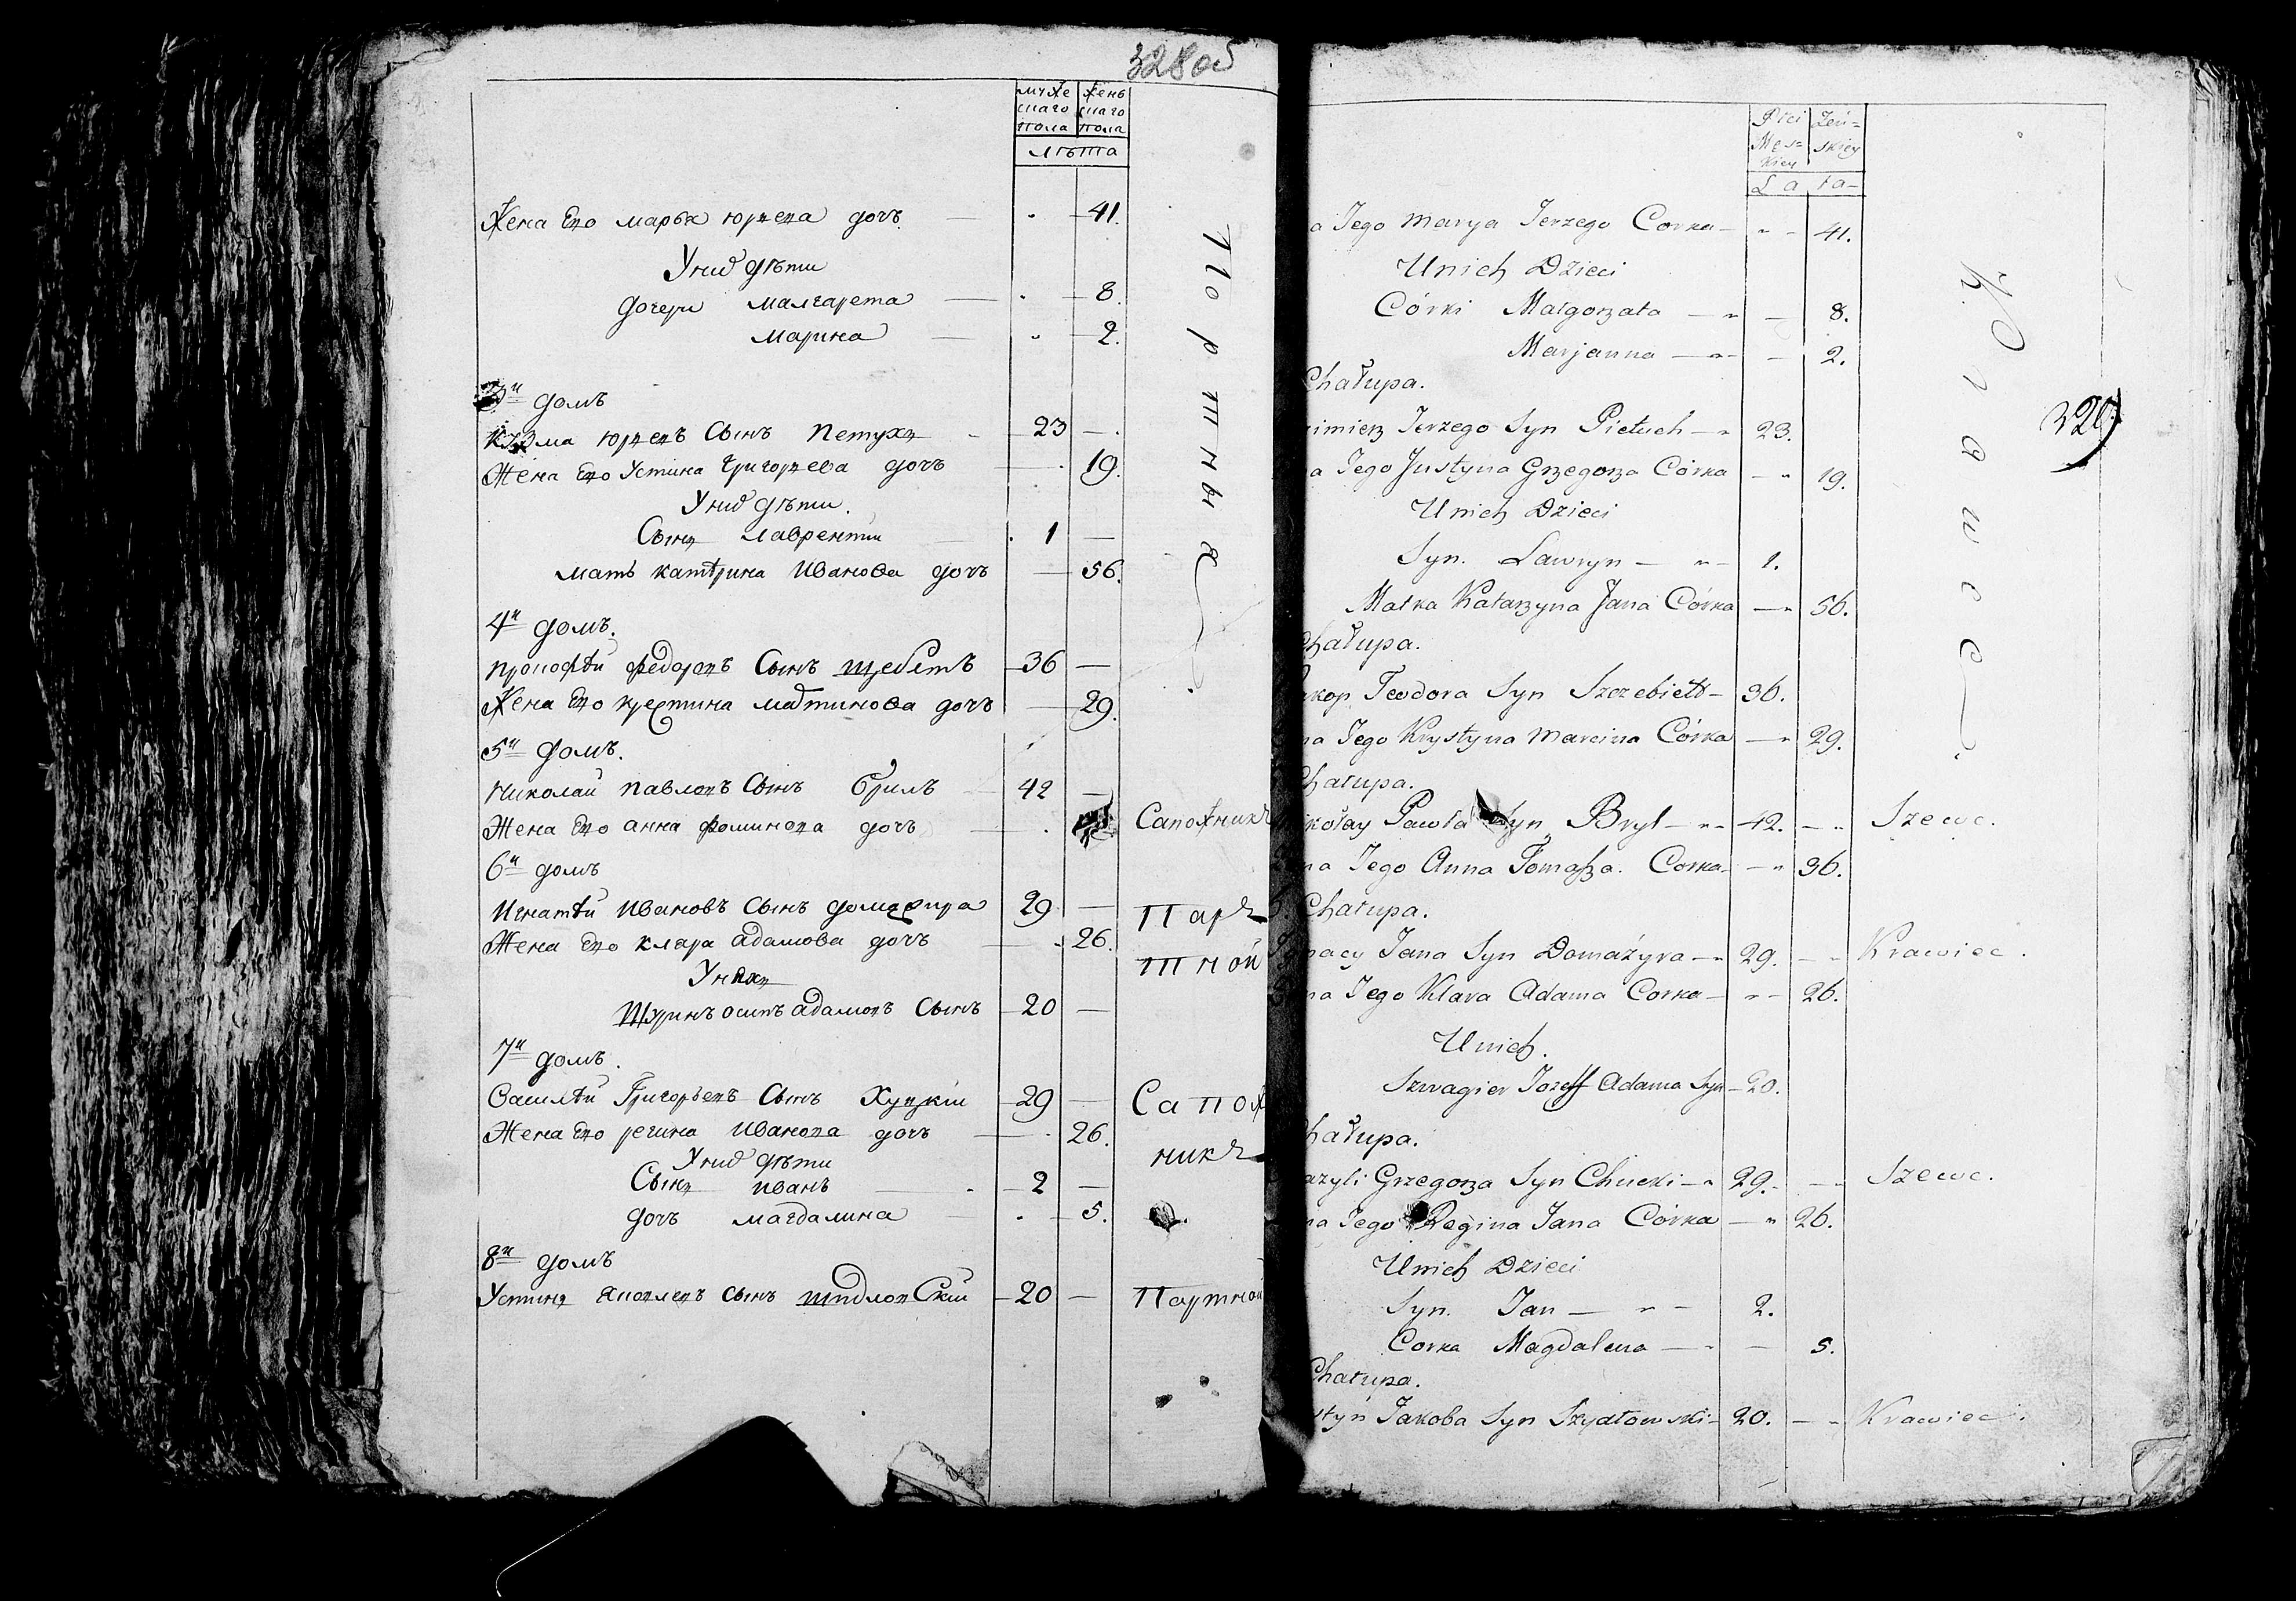 328об
муже женъ
скаго скаго
пола пола
лѣта
Жена Его марья юрьева дочь — 41.
У них дѣти
дочери малгарета — 8.
марина — 2.
3й домъ
кузма юрьевъ Сынъ петухъ 23 —
Жена Его Устина григорьева дочь — 19.
У них дѣти.
Сынъ лаврентии 1 —
мать катѣрина Иванова дочь — 56.
портные
4й домъ.
прокофѣи федоровъ Сынъ щебетъ 36 —
Жена Его крестина мартинова дочь — 29.
5й домъ.
Николаи павловъ Сынъ брилъ 42 —
Жена Его анна фоминова дочь — Сапожникъ
6й домъ
Игнатѣи Ивановъ Сынъ домажира 29 — Пор
Жена Его клара адамова дочь — 26. тной
У нихъ
Шуринъ осипъ адамовъ Сынъ 20 —
7й домъ.
Василѣи Григорьевъ Сынъ Хуцкии 29 — Сапож
Жена Его регина Иванова дочь — 26. никъ
У них дѣти
Сынъ иванъ 2 —
дочь магдалина — 5.
8й домъ
Устинъ яковлевъ сынъ шидловскии 20 — Портной
329
Płci Żeń=
Męs= skiey
kiey
La ta
a Jego Marya Jerzego Corka — 41.
U nich Dzieci
Córki Małgorzata — 8.
Marjanna — 2.
Chałupa.
zimierz Jerzego Syn Pietuch — 23.
a Jego Justyna Grzegorza Córka — 19.
U nich Dzieci
Syn. Lawryn — 1.
Matka Katarzyna Jana Córka — 56.
Krawce
hałupa.
okop Teodora Syn Szczebiett — 36.
na Jego Krystyna Marcina Córka — 29.
hałupa.
kołay Pawła Syn Bryl — 42. — Szewc.
na Jego Anna Tomasza. Corka — 36.
Chałupa.
nacy Jana Syn Domażyra — 29. — Krawiec.
na Jego Klara Adama Corka — 26.
U nich.
Szwagier Jozeff Adama Syn — 20.
hałupa.
azyli Grzegorza Syn Chucki — 29. — Szewc.
na Jego Regina Jana Córka — 26.
U nich Dzieci
Syn. Jan — 2.
Corka Magdalena — 5.
Chałupa.
styn Jakoba Syn Szydłowski — 20. — Krawiec.